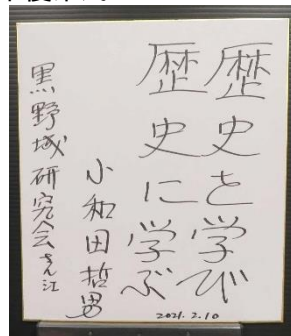 歴史を学び
歴史に学ぶ
小和田哲男
黒野城研究会さん江
2021.2.10